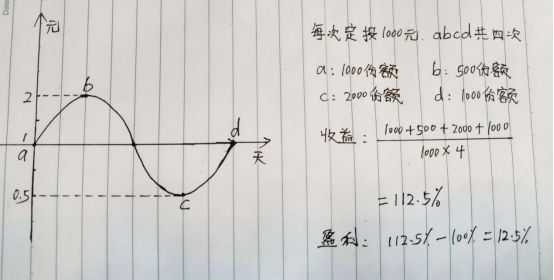 元
b
2
1
a
d
天
0.5
c
每次定投1000元. abcd共四次
a: 1000份额 b: 500份额
c: 2000份额 d: 1000份额
收益: 1000+500+2000+1000
1000×4
=112.5%
盈利: 112.5%-100%=12.5%